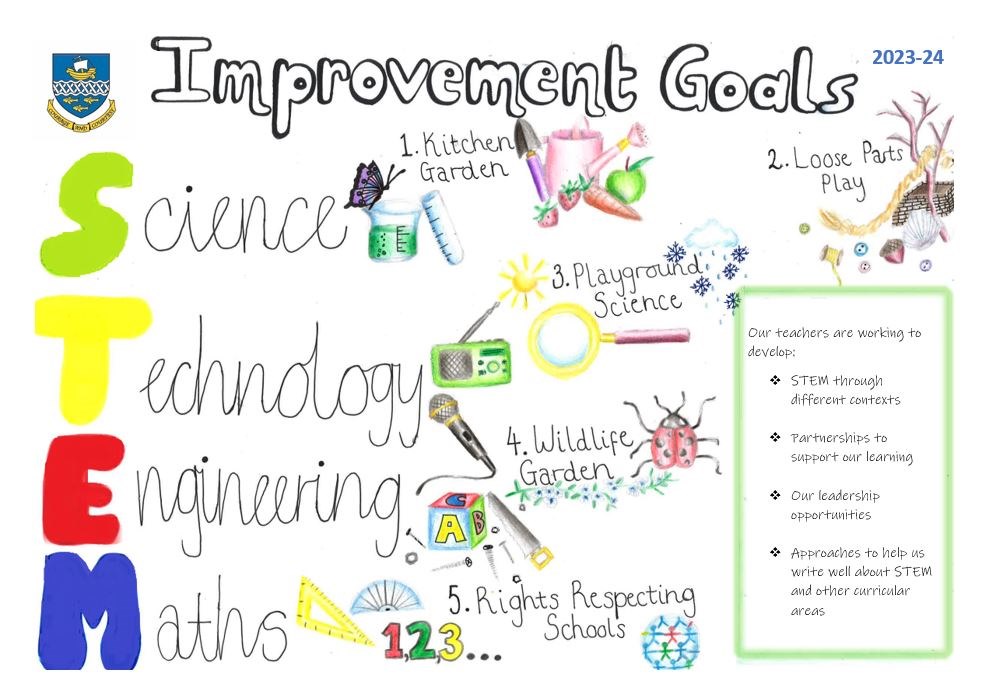 Improvement Goals
2023-24
COURAGE AND COURTESY
Science
Technology
Engineering
Maths
1. Kitchen
Garden
2. Loose Parts
Play
3. Playground
Science
4. Wildlife
Garden
5. Rights Respecting
Schools
C
A B
1,2,3...
Our teachers are working to
develop:
❖ STEM through
different contexts
❖ Partnerships to
support our learning
❖ Our leadership
opportunities
❖ Approaches to help us
write well about STEM
and other curricular
areas